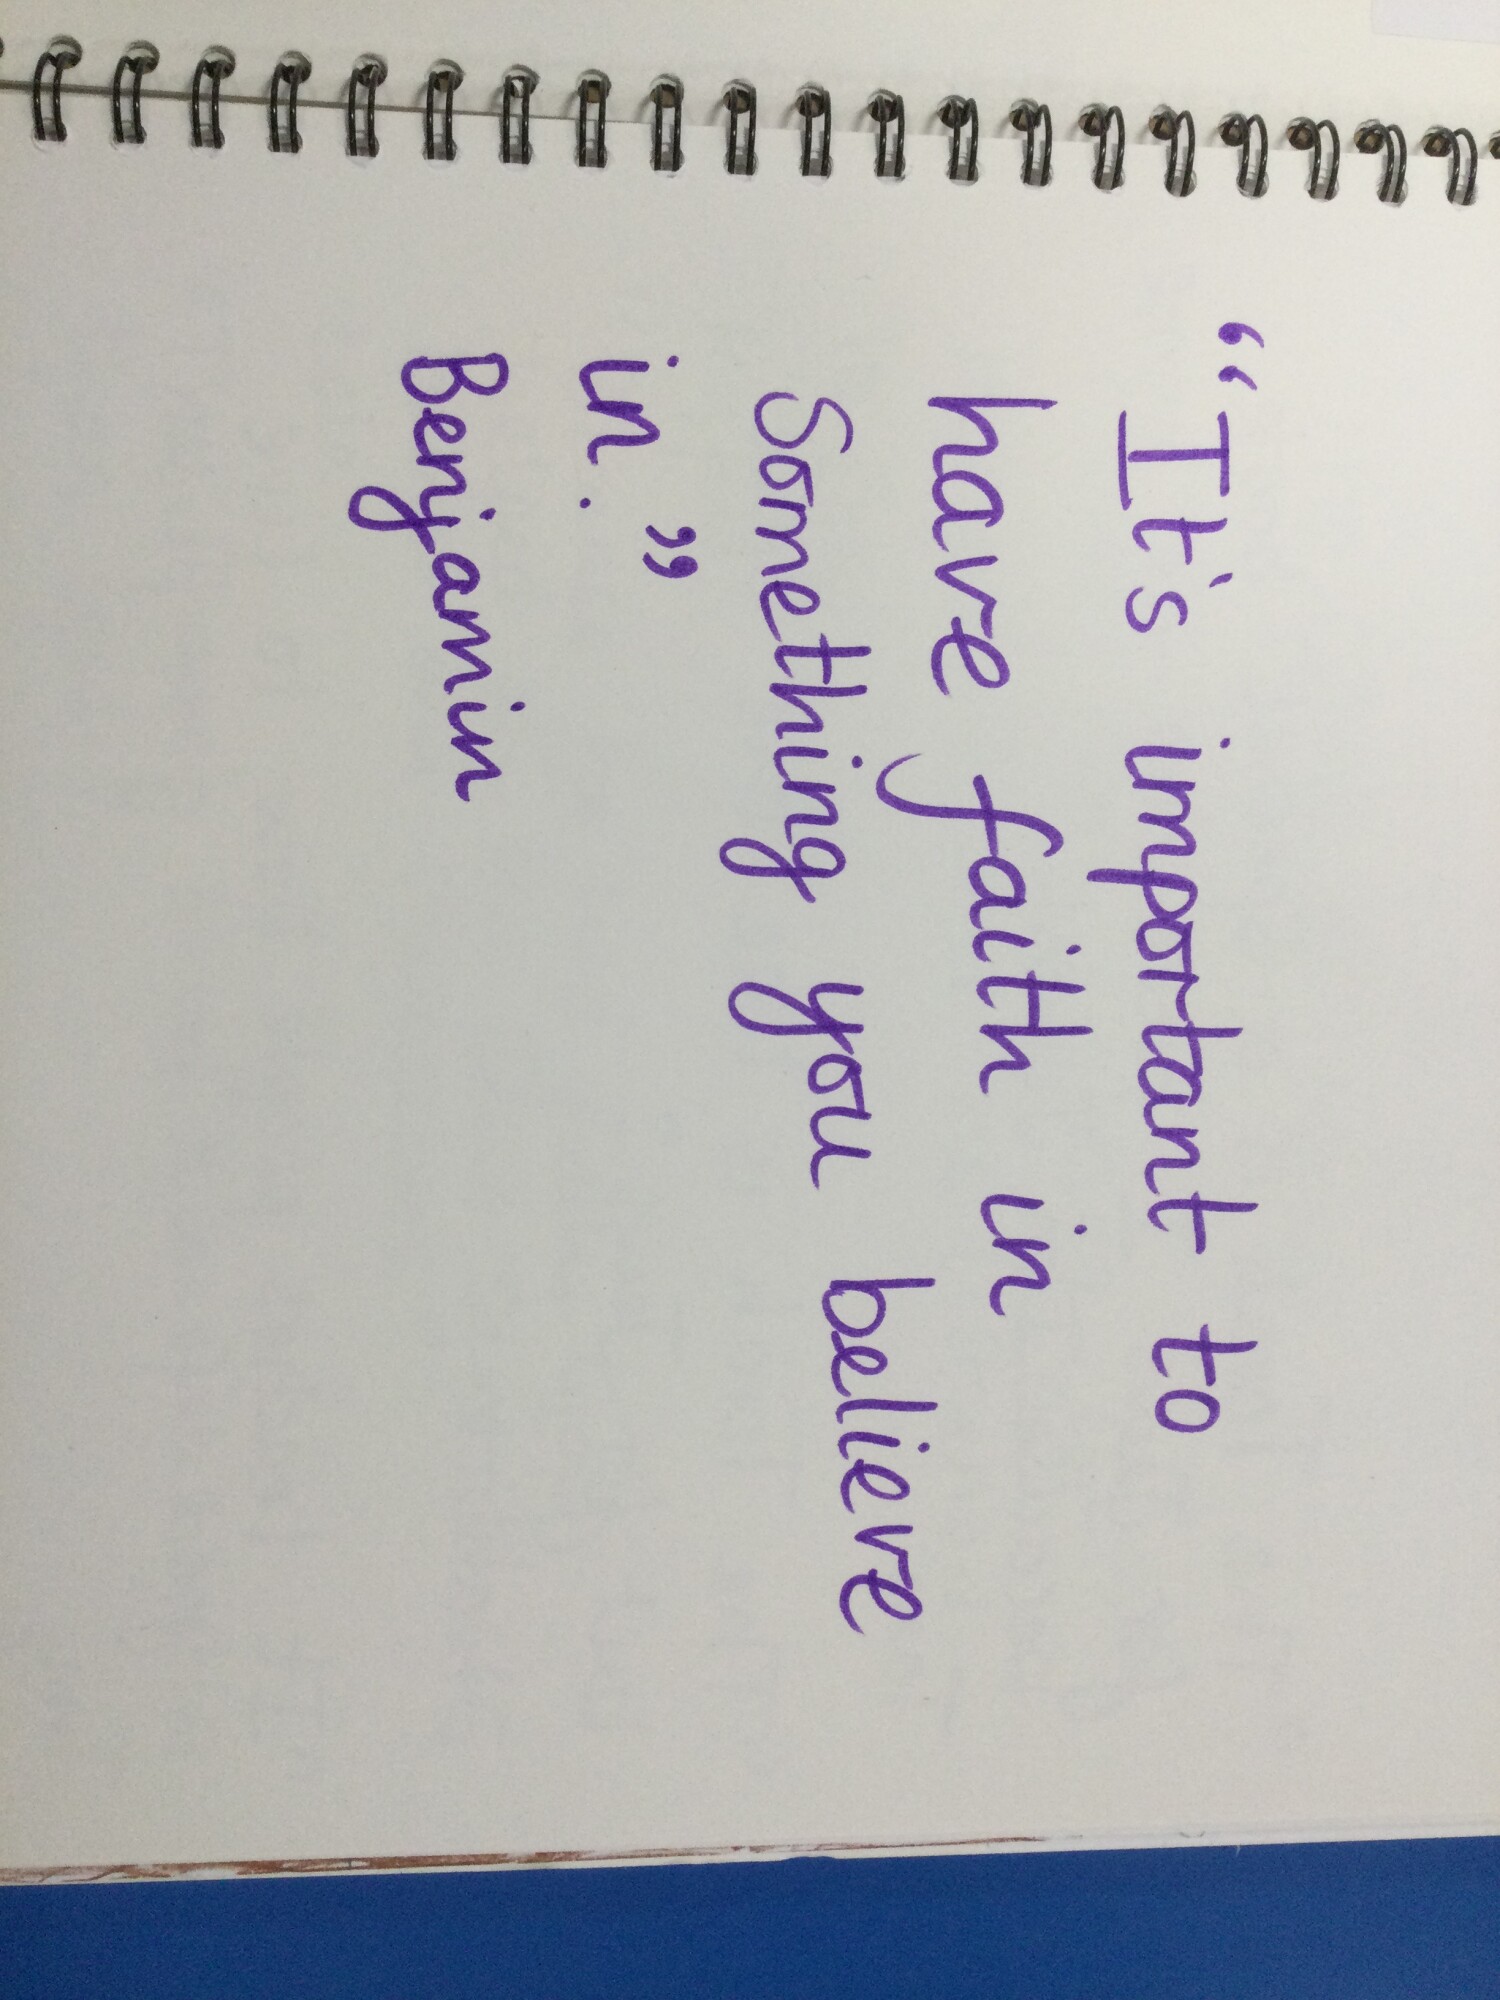 “It's important to
have faith in
Something you believe
in.”
Benjamin